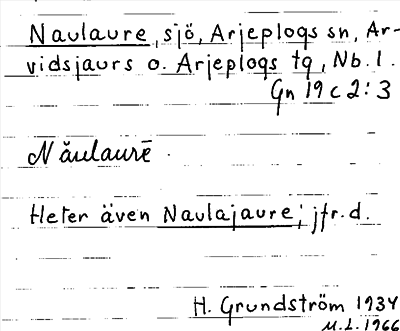 Naulaure, sjö, Arjeplogs sn, Ar-
vidsjaurs o. Arjeplogs tg, Nb. l.
Gn 19 c 2:3
Năulaurē.
Heter även Naulajaure; jfr. d.
H. Grundström 1934
M.L. 1966